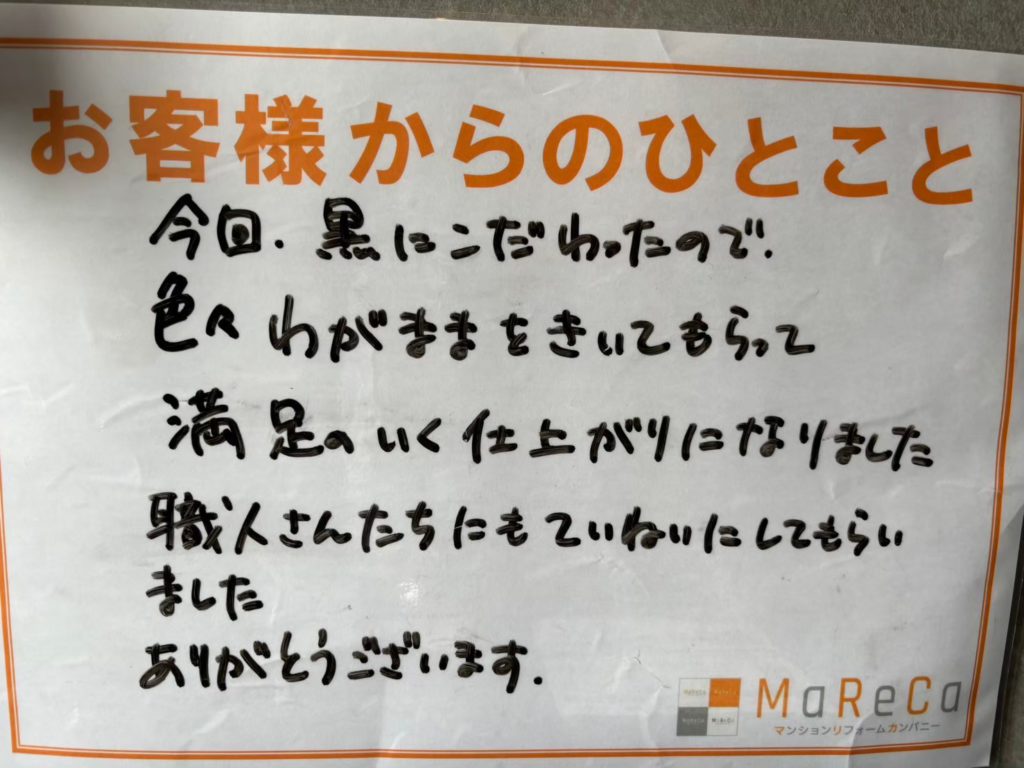 お客様からのひとこと
今回、黒にこだわったので、
色々わがままをきいてもらって
満足のいく仕上がりになりました
職人さんたちにもていねいにしてもらい
ました
ありがとうございます。
MaReCa
マンションリフォームカンパニー